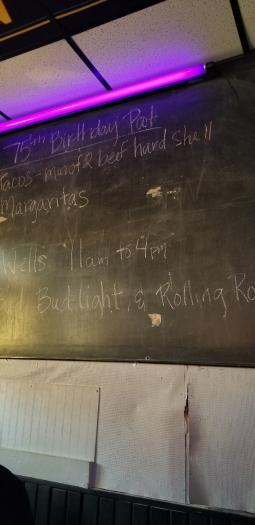 75th Birthday Pat
Tacos - min of 2 beef hard shell
Margaritas
Wells 11am to 4pm
Bud light, & Rolling Ro